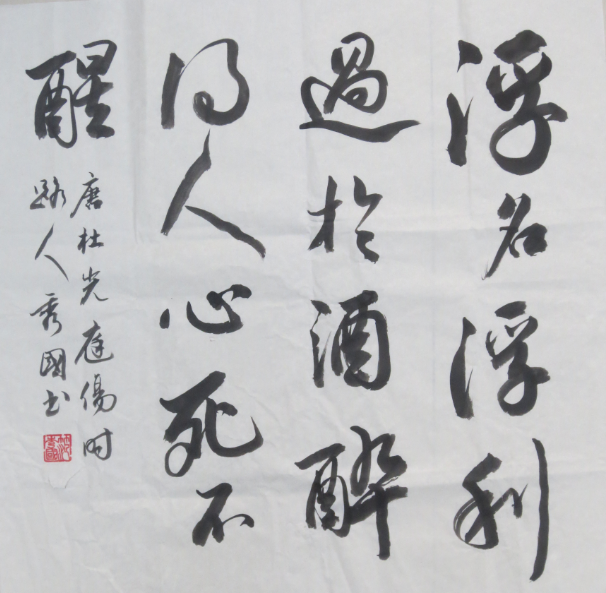 浮名浮利
過於酒醉
得人心死不
醒
唐杜光庭傷時
路人秀國书